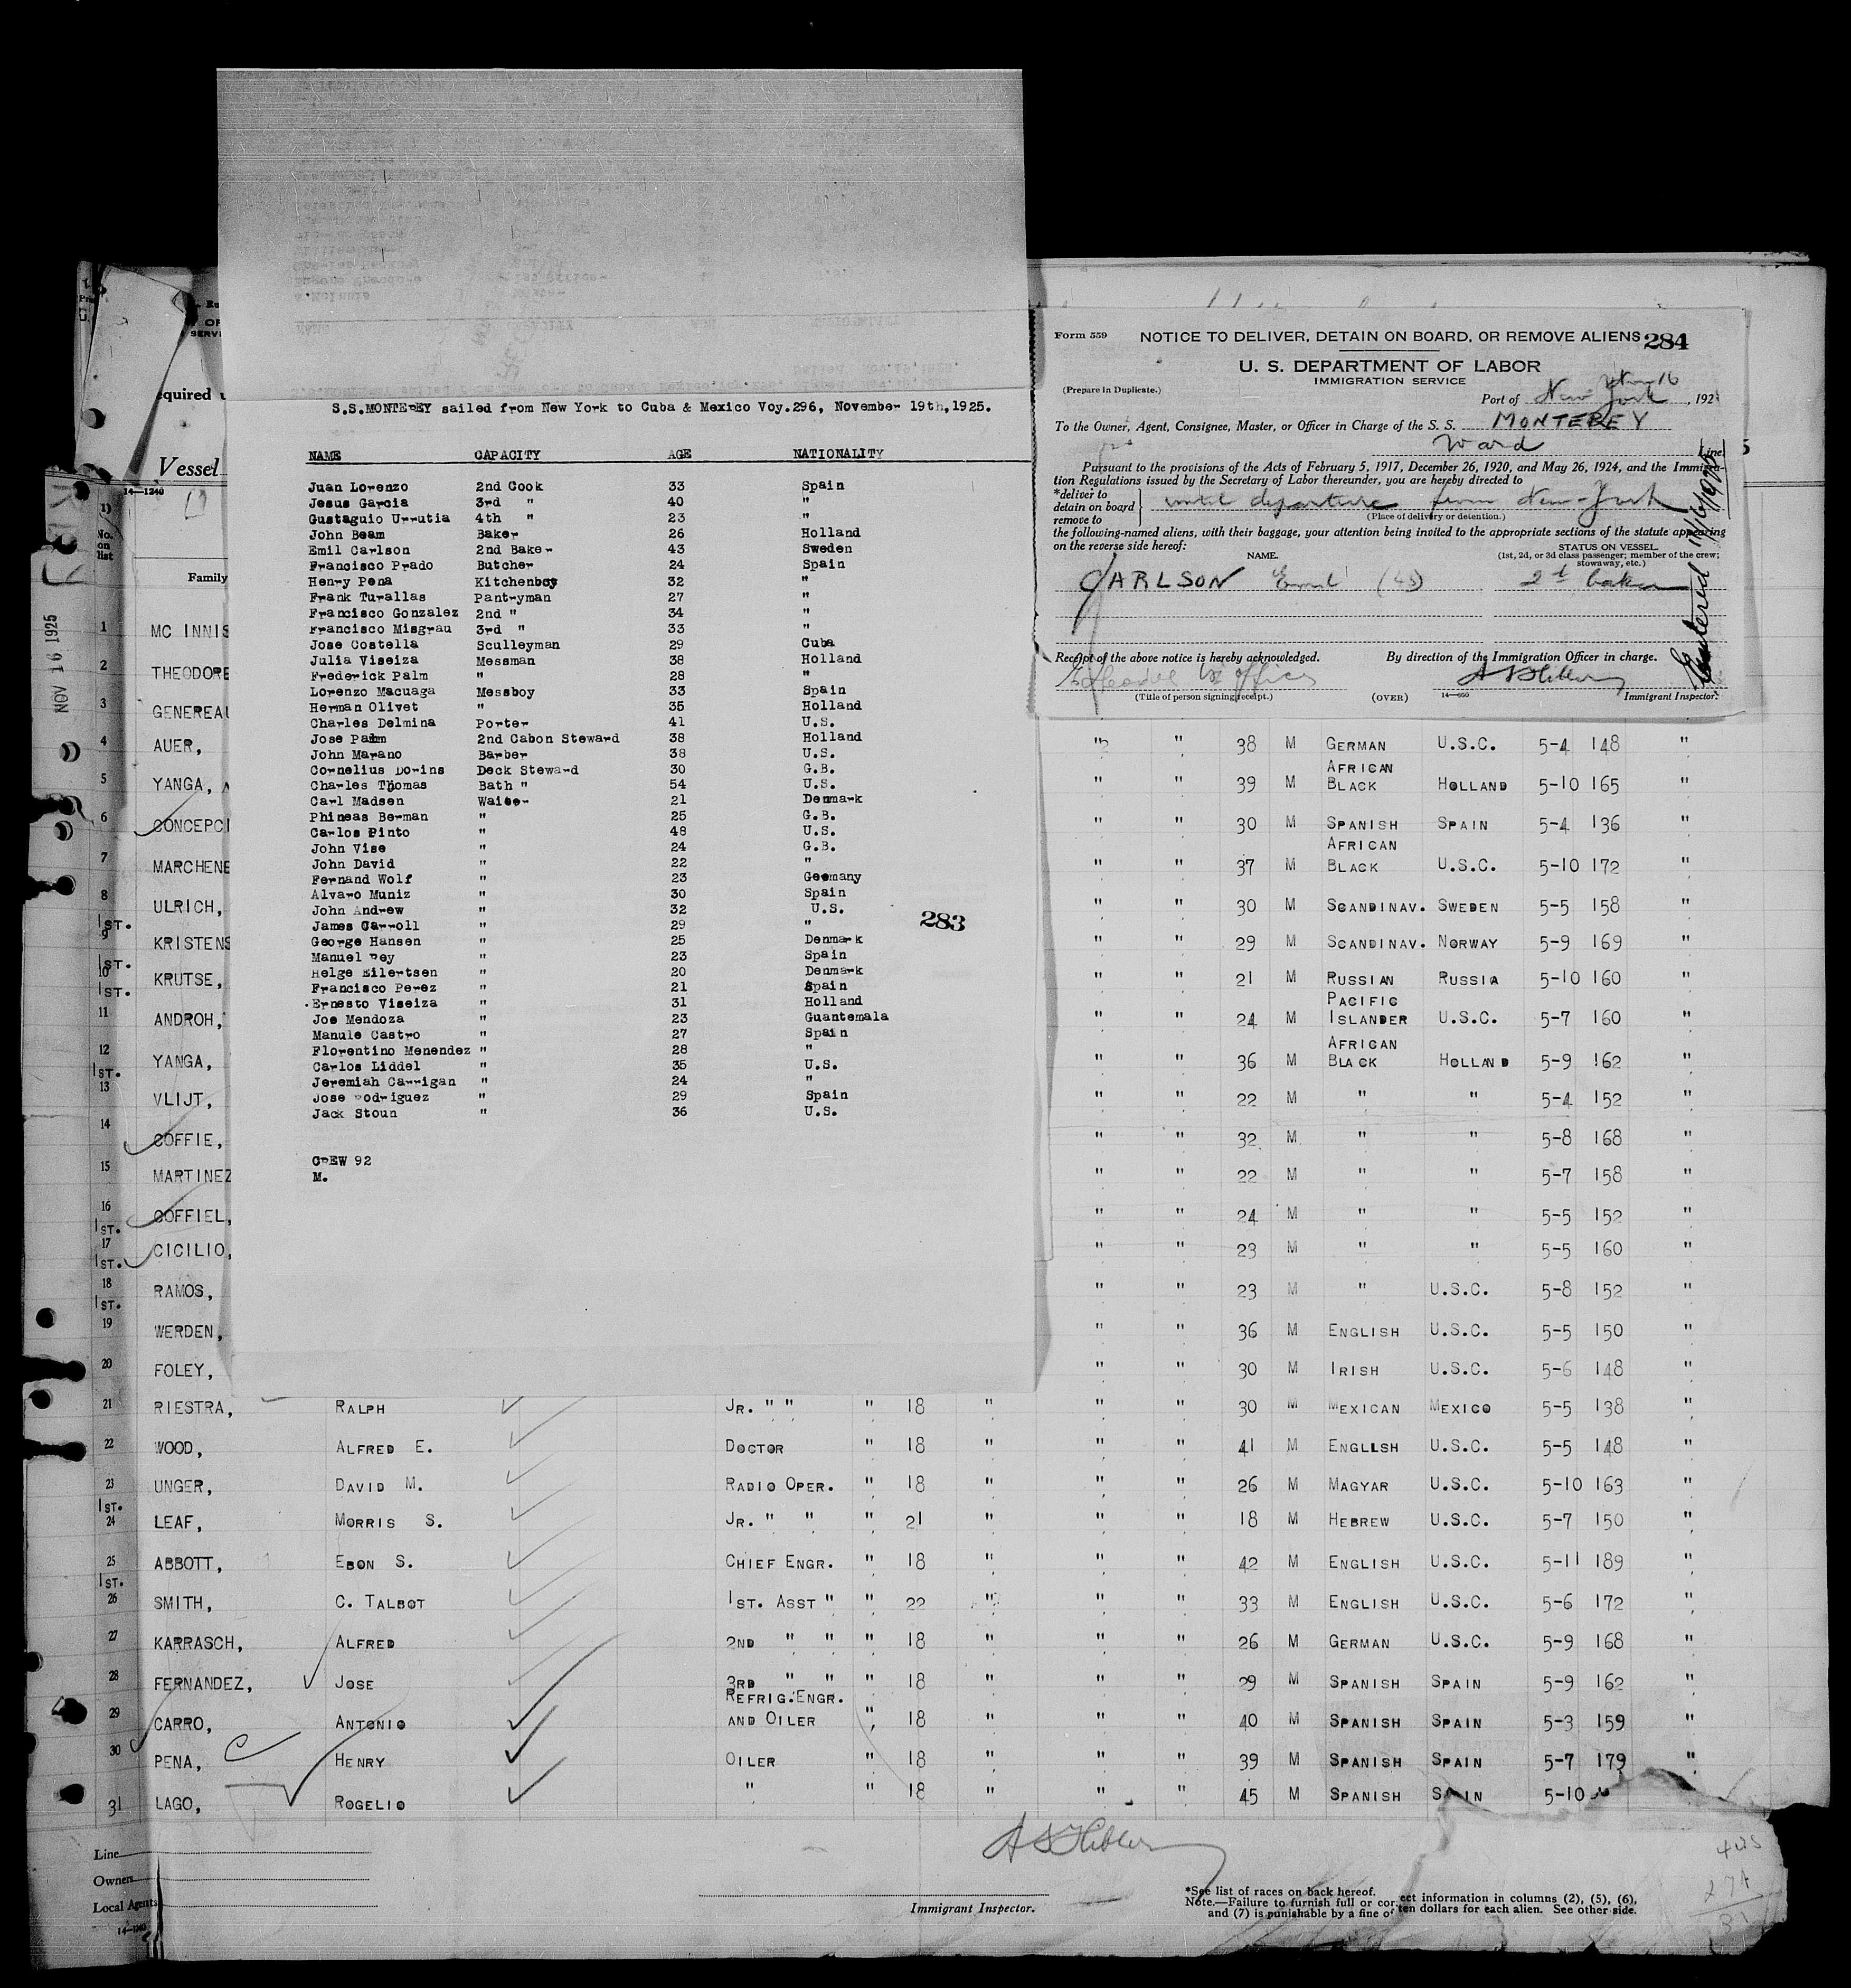 S.S.MONTEREY sailed from New York to Cuba & Mexico Voy.296, November 19th,1925.
NAME CAPACITY AGE NATIONALITY
Juan Lorenzo 2nd Cook 33 Spain
Jesus Garcia 3rd " 40 "
Gustaguio Urrutia 4th " 23 "
John Beam Baker 26 Holland
Emil Carlson 2nd Baker 43 Sweden
Francisco Prado Butcher 24 Spain
Henry Pena Kitchenboy 32 "
Frank Turallas Pantryman 27 "
Francisco Gonzalez 2nd " 34 "
Francisco Misgrau 3rd " 33 "
Jose Costella Sculleyman 29 Cuba
Julia Viseiza Messman 38 Holland
Frederick Palm " 28 "
Lorenzo Macuaga Messboy 33 Spain
Herman Olivet " 35 Holland
Charles Delmina Porter 41 U.S.
Jose Palm 2nd Cabon Steward 38 Holland
John Marano Barber 38 U.S.
Cornelius Dorins Deck Steward 30 G.B.
Charles Thomas Bath " 54 U.S.
Carl Madsen Waiter 21 Denmark
Phineas Berman " 25 G.B.
Carlos Pinto " 48 U.S.
John Vise " 24 G.B.
John David " 22 "
Fernand Wolf " 23 Geemany
Alvaro Muniz " 30 Spain
John Andrew " 32 U.S.
James Carroll " 29 "
283
George Hansen " 25 Denmark
Manuel Rey " 23 Spain
Helge Eilertsen " 20 Denmark
Francisco Perez " 21 Spain
Ernesto Viseiza " 31 Holland
Joe Mendoza " 23 Guantemala
Manule Castro " 27 Spain
Florentino Menendez " 28 "
Carlos Liddel " 35 U.S.
Jeremiah Carrigan " 24 "
Jose Rodriguez " 29 Spain
Jack Stoun " 36 U.S.
CREW 92
M.
Form 559 NOTICE TO DELIVER, DETAIN ON BOARD, OR REMOVE ALIENS 284
U. S. DEPARTMENT OF LABOR
IMMIGRATION SERVICE
(Prepare in Duplicate.)
Nov 16
Port of New York, 192
To the Owner, Agent, Consignee, Master, or Officer in Charge of the S. S. MONTEREY
Ward Line
Pursuant to the provisions of the Acts of February 5, 1917, December 26, 1920, and May 26, 1924, and the Immigra-
tion Regulations issued by the Secretary of Labor thereunder, you are hereby directed to
*deliver to
detain on board until departure from New-York
remove to (Place of delivery or detention.)
the following-named aliens, with their baggage, your attention being invited to the appropriate sections of the statute appearing
on the reverse side hereof:
NAME. STATUS ON VESSEL.
(1st, 2d, or 3d class passenger; member of the crew;
stowaway, etc.)
CARLSON Emil (43) 2d baker
Receipt of the above notice is hereby acknowledged. By direction of the Immigration Officer in charge.
(Title of person signing receipt.) (OVER) 14—650 Immigrant Inspector.
Entered 11/6/1925
equired u
Vessel
14—1240
No. on list
Family
NOV 16 1925
1 MC INNIS
2 THEODORE
3 GENEREAU
4 AUER, " " 38 M GERMAN U.S.C. 5-4 148 "
5 YANGA, " " 39 M AFRICAN BLACK HOLLAND 5-10 165 "
6 CONCEPCI " " 30 M SPANISH SPAIN 5-4 136 "
7 MARCHENE " " 37 M AFRICAN BLACK U.S.C. 5-10 172 "
8 ULRICH, " " 30 M SCANDINAV. SWEDEN 5-5 158 "
1ST.
9 KRISTENS " " 29 M SCANDINAV. NORWAY 5-9 169 "
1ST.
10 KRUTSE, " " 21 M RUSSIAN RUSSIA 5-10 160 "
1ST.
11 ANDROH, " " 24 M PACIFIC ISLANDER U.S.C. 5-7 160 "
12 YANGA, " " 36 M AFRICAN BLACK HOLLAND 5-9 162 "
1ST.
13 VLIJT, " " 22 M " " 5-4 152 "
14 COFFIE, " " 32 M " " 5-8 168 "
15 MARTINEZ " " 22 M " " 5-7 158 "
16 COFFIEL, " " 24 M " " 5-5 152 "
1ST.
17 CICILIO, " " 23 M " " 5-5 160 "
1ST.
18 RAMOS, " " 23 M " U.S.C. 5-8 152 "
1ST.
19 WERDEN, " " 36 M ENGLISH U.S.C. 5-5 150 "
20 FOLEY, " " 30 M IRISH U.S.C. 5-6 148 "
21 RIESTRA, RALPH JR. " " " 18 " " " 30 M MEXICAN MEXICO 5-5 138 "
22 WOOD, ALFRED E. DOCTOR " 18 " " " 41 M ENGLLSH U.S.C. 5-5 148 "
23 UNGER, DAVID M. RADIO OPER. " 18 " " " 26 M MAGYAR U.S.C. 5-10 163 "
1ST.
24 LEAF, MORRIS S. JR. " " " 21 " " " 18 M HEBREW U.S.C. 5-7 150 "
25 ABBOTT, EBON S. CHIEF ENGR. " 18 " " " 42 M ENGLISH U.S.C. 5-11 189 "
1ST.
26 SMITH, C. TALBOT 1ST. ASST " " 22 " " " 33 M ENGLISH U.S.C. 5-6 172 "
27 KARRASCH, ALFRED 2ND " " " 18 " " " 26 M GERMAN U.S.C. 5-9 168 "
28 FERNANDEZ, JOSE 3RD " " " 18 " " " 29 M SPANISH SPAIN 5-9 162 "
29 CARRO, ANTONIO REFRIG. ENGR. AND OILER " 18 " " " 40 M SPANISH SPAIN 5-3 159 "
30 PENA, HENRY OILER " 18 " " " 39 M SPANISH SPAIN 5-7 179 "
31 LAGO, ROGELIO " " 18 " " " 45 M SPANISH SPAIN 5-10
Line
Owners
Local Agents
Immigrant Inspector.
*See list of races on back hereof.
Note.—Failure to furnish full or cor ect information in columns (2), (5), (6),
and (7) is punishable by a fine of ten dollars for each alien. See other side.